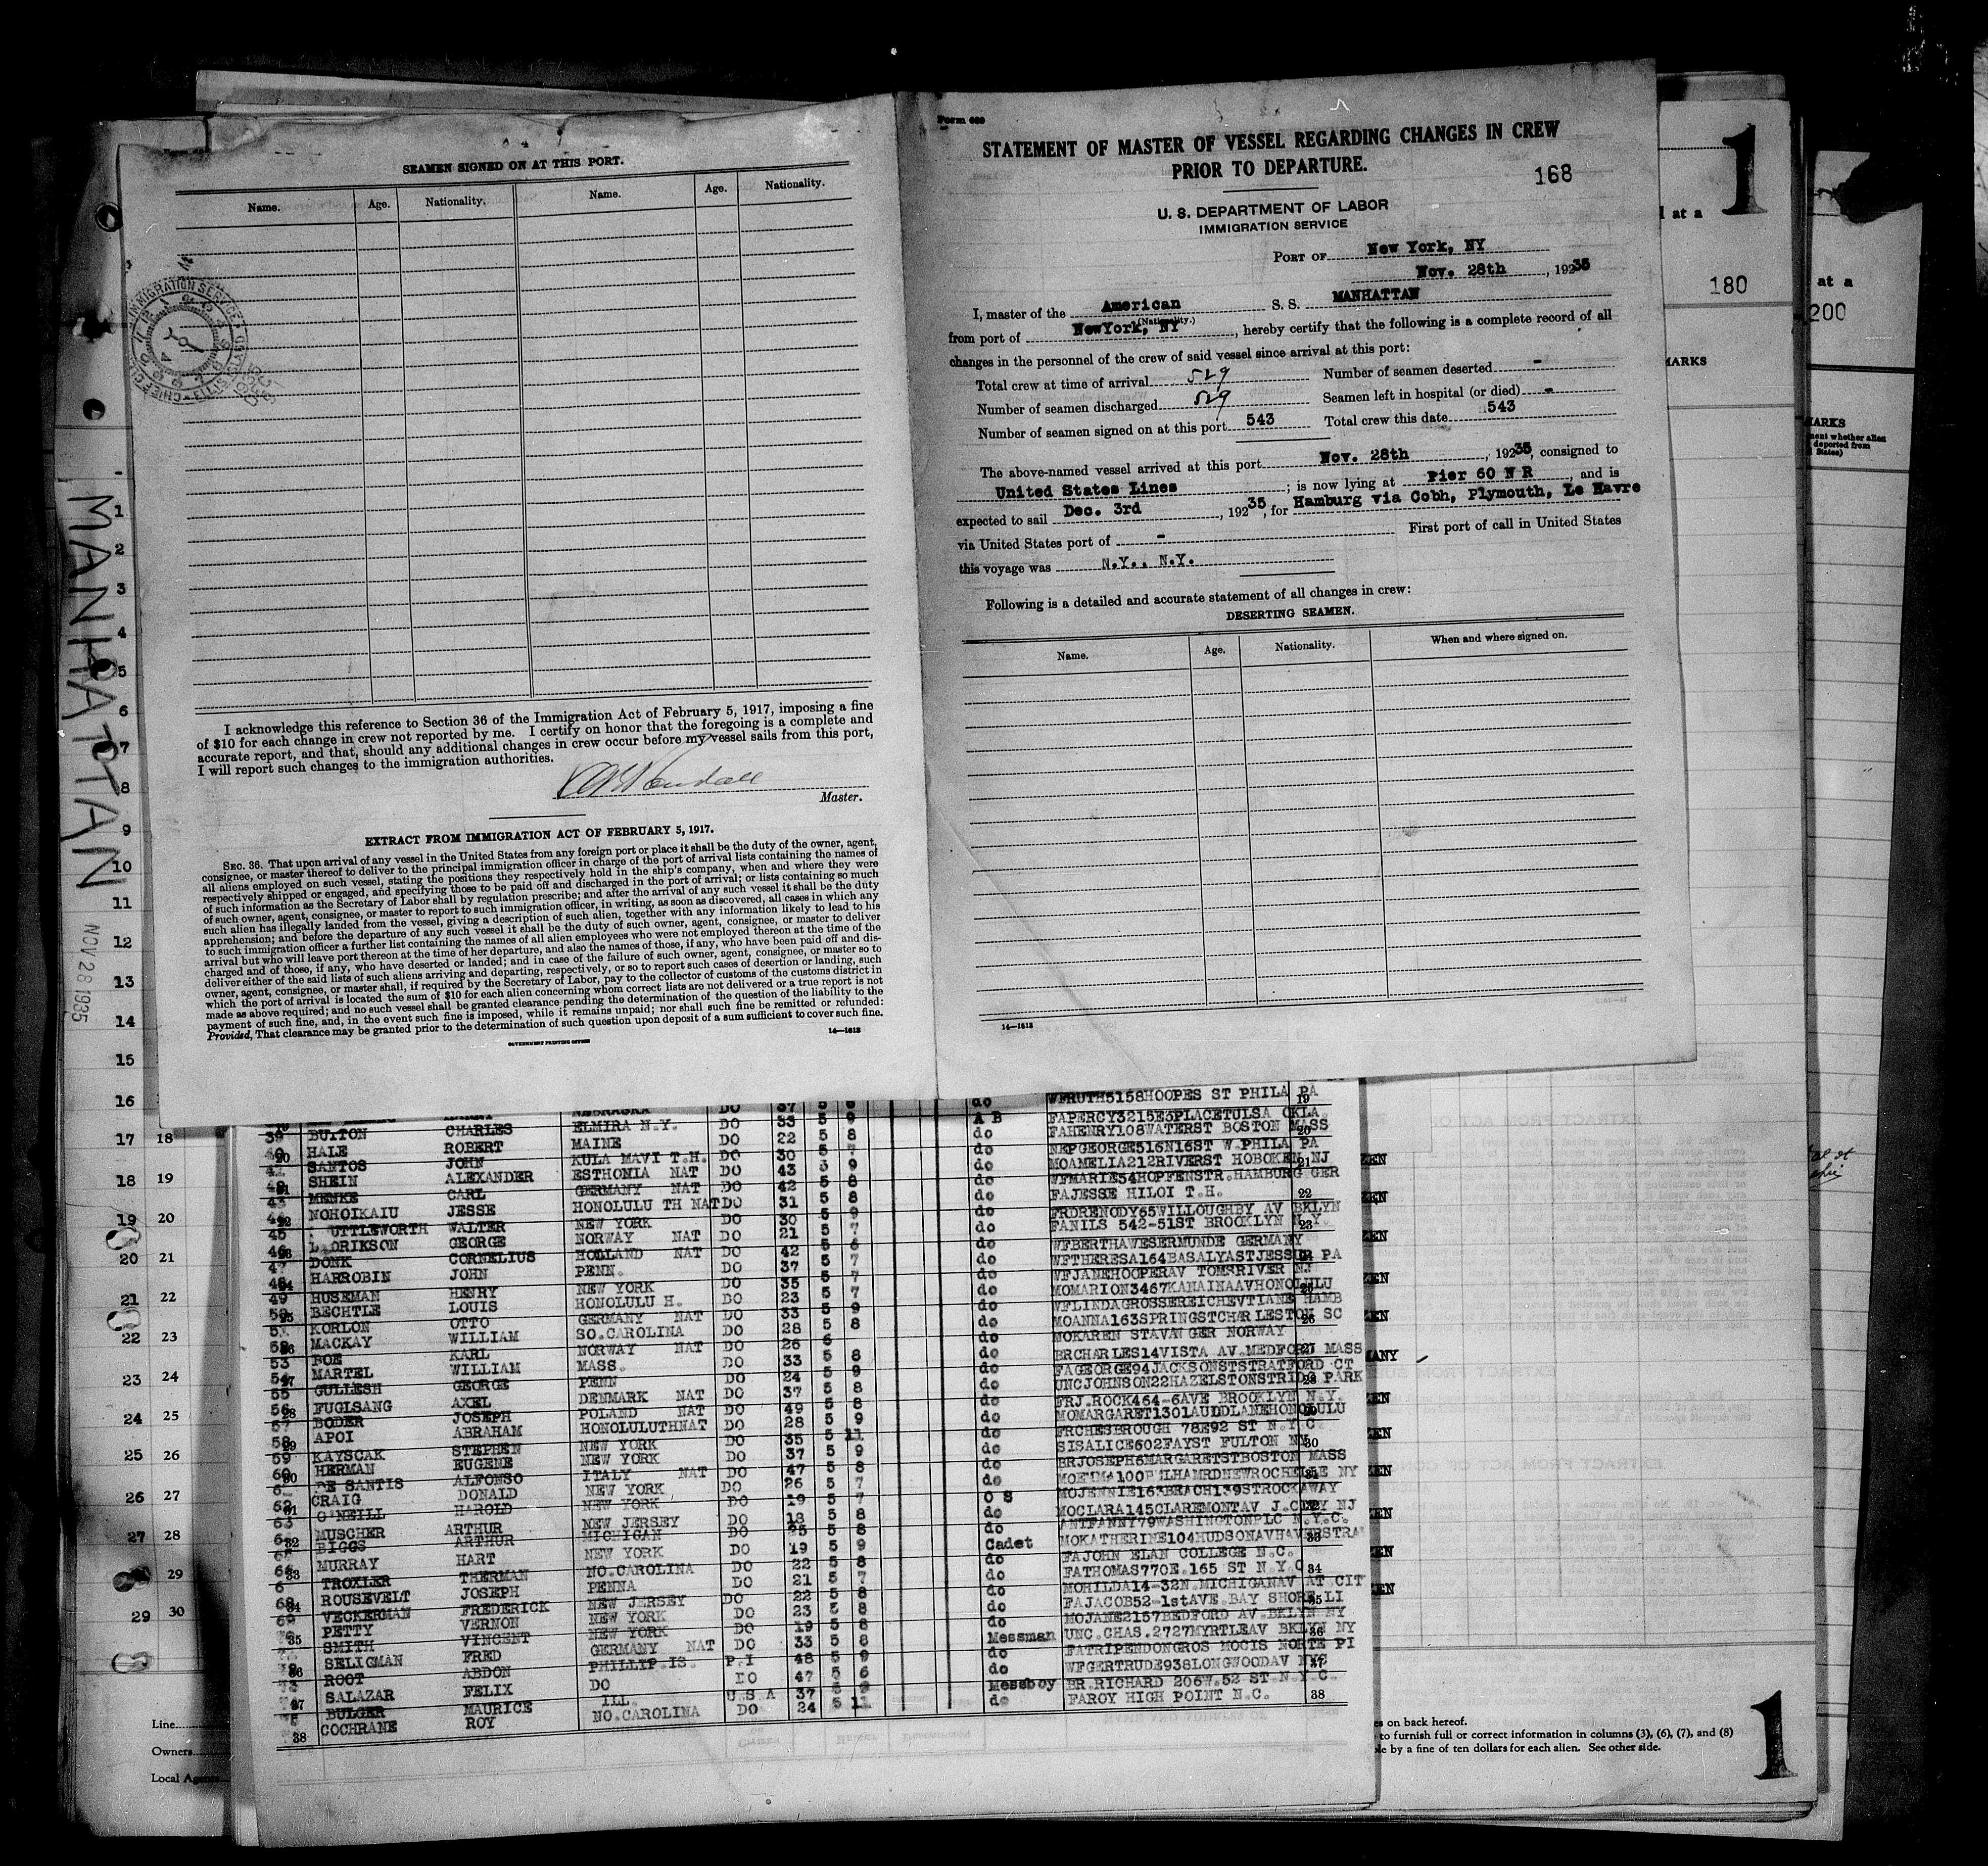 SEAMEN SIGNED ON AT THIS PORT.
Name. Age. Nationality. Name. Age. Nationality.
I acknowledge this reference to Section 36 of the Immigration Act of February 5, 1917, imposing a fine
of $10 for each change in crew not reported by me. I certify on honor that the foregoing is a complete and
accurate report, and that, should any additional changes in crew occur before my vessel sails from this port,
I will report such changes to the immigration authorities.
Master.
EXTRACT FROM IMMIGRATION ACT OF FEBRUARY 5, 1917.
SEC. 36. That upon arrival of any vessel in the United States from any foreign port or place it shall be the duty of the owner, agent,
consignee, or master thereof to deliver to the principal immigration officer in charge of the port of arrival lists containing the names of
all aliens employed on such vessel, stating the positions they respectively hold in the ship's company, when and where they were
respectively shipped or engaged, and specifying those to be paid off and discharged in the port of arrival; or lists containing so much
of such information as the Secretary of Labor shall by regulation prescribe; and after the arrival of any such vessel it shall be the duty
of such owner, agent, consignee, or master to report to such immigration officer, in writing, as soon as discovered, all cases in which any
such alien has illegally landed from the vessel, giving a description of such alien, together with any information likely to lead to his
apprehension; and before the departure of any such vessel it shall be the duty of such owner, agent, consignee, or master to deliver
to such immigration officer a further list containing the names of all alien employees who were not employed thereon at the time of the
arrival but who will leave port thereon at the time of her departure, and also the names of those, if any, who have been paid off and dis-
charged and of those, if any, who have deserted or landed; and in case of the failure of such owner, agent, consignee, or master so to
deliver either of the said lists of such aliens arriving and departing, respectively, or so to report such cases of desertion or landing, such
owner, agent, consignee, or master shall, if required by the Secretary of Labor, pay to the collector of customs of the customs district in
which the port of arrival is located the sum of $10 for each alien concerning whom correct lists are not delivered or a true report is not
made as above required; and no such vessel shall be granted clearance pending the determination of the question of the liability to the
payment of such fine, and, in the event such fine is imposed, while it remains unpaid; nor shall such fine be remitted or refunded:
Provided, That clearance may be granted prior to the determination of such question upon deposit of a sum sufficient to cover such fine.
GOVERNMENT PRINTING OFFICE 14—1613
Form 689
STATEMENT OF MASTER OF VESSEL REGARDING CHANGES IN CREW
PRIOR TO DEPARTURE.
168
U. S. DEPARTMENT OF LABOR
IMMIGRATION SERVICE
PORT OF New York, NY
Nov. 28th, 192 35
I, master of the American S. S. MANHATTAN
(Nationality.)
from port of NewYork, NY, hereby certify that the following is a complete record of all
changes in the personnel of the crew of said vessel since arrival at this port:
Total crew at time of arrival 529 Number of seamen deserted -
Number of seamen discharged 529 Seamen left in hospital (or died) -
Number of seamen signed on at this port 543 Total crew this date 543
The above-named vessel arrived at this port Nov. 28th, 192 35, consigned to
United States Lines; is now lying at Pier 60 N R, and is
expected to sail Dec. 3rd, 192 35, for Hamburg via Cobh, Plymouth, Le Havre
via United States port of - First port of call in United States
this voyage was N.Y., N.Y.
Following is a detailed and accurate statement of all changes in crew:
DESERTING SEAMEN.
Name. Age. Nationality. When and where signed on.
14—1613
MANHATTAN
NOV 28 1935
1
at a
180
at a
200
MARKS
do WFRUTH5158HOOPES ST PHILA PA
NEBRASKA DO 37 5 8 A B FAPERCY3215E3PLACETULSA OKLA.
39 BUTTON CHARLES ELMIRA N.Y. DO 33 5 9 do FAHENRY108WATERST BOSTON MASS
HALE ROBERT MAINE DO 22 5 8 do NEPGEORGE516N16ST W.PHILA PA
SANTOS JOHN KULA MAVI T.H. DO 30 5 7 do MOAMELIA212RIVERST HOBOKEN NJ
SHEIN ALEXANDER ESTHONIA NAT DO 43 5 9 do WFMARIE54HOPFENSTR.HAMBURG GER
43 MENKE CARL GERMANY NAT DO 42 5 8 do FAJESSE HILOI T.H.
NOHOIKAIU JESSE HONOLULU TH NAT DO 31 5 8 do FRDRENODY65WILLOUGHBY AV BKLYN
45 UTTLEWORTH WALTER NEW YORK DO 30 5 9 do FANILS 542-51ST BROOKLYN N.Y.
GEORGE NORWAY NAT DO 21 5 7 do WFBERTHAWESERMUNDE GERMANY
47 DONK CORNELIUS HOLLAND NAT DO 42 5 6 do
HARROBIN JOHN PENN. DO 37 5 7 do WFJANEHOOPERAV TOMSRIVER NJ
49 HUSEMAN HENRY NEW YORK DO 35 5 7 do MOMARION3467KAHAINAAVHONOLULU
BECHTLE LOUIS HONOLULU H. DO 23 5 7 do
KORLON OTTO GERMANY NAT DO 33 5 9 do MOANNA163SPRINGSTCHARLESTON SC
MACKAY WILLIAM SO.CAROLINA DO 28 5 8 do MOKAREN STAVANGER NORWAY
53 BOE KARL NORWAY NAT DO 26 6 do BRCHARLES14VISTA AV.MEDFORD MASS
54 MARTEL WILLIAM MASS. DO 33 5 8 do FAGEORGE94JACKSONSTSTRATFORD CT
55 GULLESH GEORGE PENN DO 24 5 9 do
56 FUGLSANG AXEL DENMARK NAT DO 37 5 8 do FRJ.ROCK464-6AVE BROOKLYN N.Y.
57 BODER JOSEPH POLAND NAT DO 49 5 8 do MOMARGARET1301AUDDLANEHONOLULU
APOI ABRAHAM HONOLULUTHNAT DO 28 5 9 do FRCHESBROUGH 78E92 ST N.Y.C.
59 KAYSCAK STEPHEN NEW YORK DO 35 5 11 do SISALICE602FAYST FULTON NY
HERMAN EUGENE NEW YORK DO 37 5 9 do BRJOSEPH6MARGARETSTBOSTON MASS
DE SANTIS ALFONSO ITALY NAT DO 47 5 8 do
CRAIG DONALD NEW YORK DO 26 5 7 O S MOJENNIE163BEACH139STROCKAWAY
O'NEILL HAROLD NEW YORK DO 19 5 7 do MOCLARA145CLAREMONTAV J.CITY NJ
MUSCHER ARTHUR NEW JERSEY DO 18 5 8 do ANTFANNY79WASHINGTONPLC N.Y.C.
BIGGS ARTHUR MICHIGAN DO 5 8 Cadet MOKATHERINE104HUDSONAVHAVERSTRAW
MURRAY HART NEW YORK DO 19 5 9 do FAJOHN ELAN COLLEGE N.C.
TROXLER THERMAN NO.CAROLINA DO 22 5 8 do FATHOMAS770E.165 ST N.Y.C
ROUSEVELT JOSEPH PENNA DO 21 5 7 do MOHILDA14-32N.MICHIGANAV AT CIT
VECKERMAN FREDERICK NEW JERSEY DO 22 5 8 do FAJACOB52-1stAVE.BAY SHORE LI
PETTY VERNON NEW YORK DO 23 5 8 do MOJANE2157BEDFORD AV.BKLYN NY
SMITH VINCENT NEW YORK DO 19 5 8 Messman UNC.CHAS.2727MYRTLEAV BKLYN NY
SELIGMAN FRED GERMANY NAT DO 33 5 8 do
ROOT ABDON PHILLIP.IS. P.I 48 5 9 do WFGERTRUDE938LONGWOODAV NYC
SALAZAR FELIX DO DO 47 5 6 Messboy BR.RICHARD 206W.52 ST.N.Y.C.
BULGER MAURICE ILL. U.S A 37 5 do FAROY HIGH POINT N.C.
COCHRANE ROY NO.CAROLINA DO 24 5 11
Line
Owners
Local Agents
s on back hereof.
to furnish full or correct information in columns (3), (6), (7), and (8)
le by a fine of ten dollars for each alien. See other side.
1